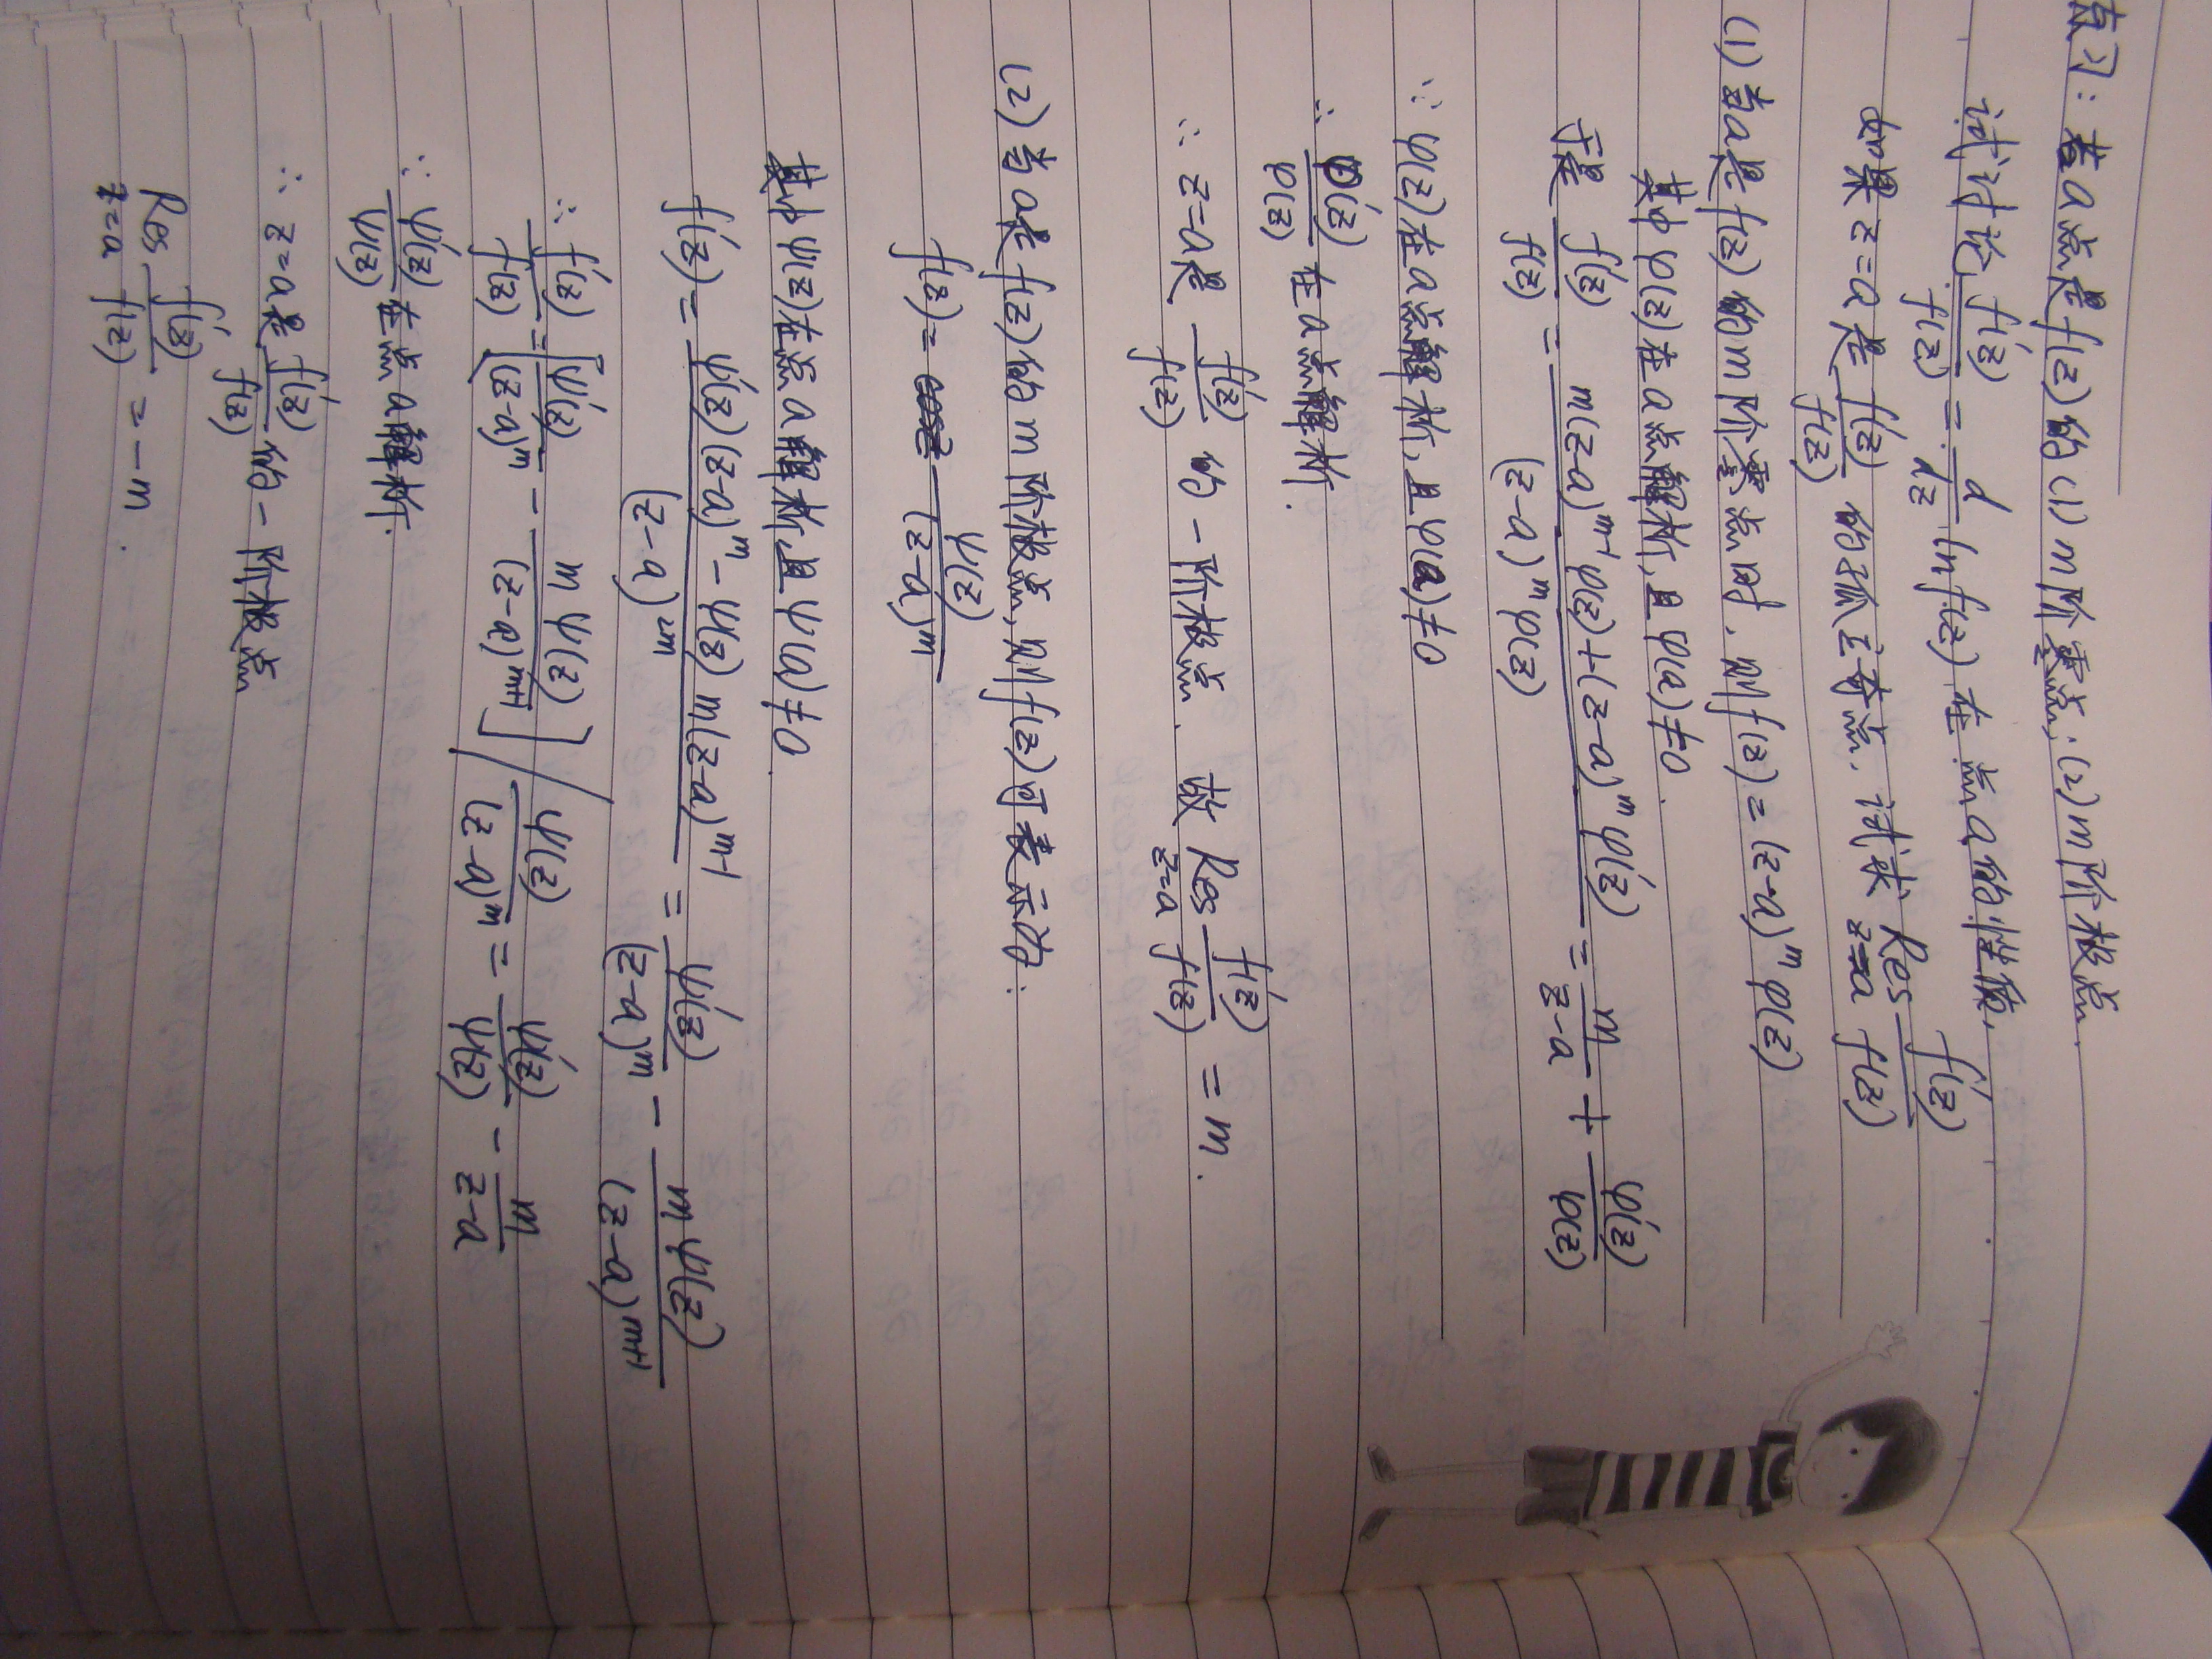 复习：若a点是f(z)的(1)m阶零点；(2)m阶极点.
试讨论 f'(z)/f(z) = d/dz ln f(z) 在点a的性质，
如果z=a是 f'(z)/f(z) 的孤立奇点，试求 Res_{z=a} f'(z)/f(z)
(1) 当a是f(z)的m阶零点时，则f(z)=(z-a)^m φ(z)
其中φ(z)在a点解析，且φ(a)≠0.
于是 f'(z)/f(z) = [m(z-a)^{m-1}φ(z)+(z-a)^m φ'(z)]/[(z-a)^m φ(z)] = m/(z-a) + φ'(z)/φ(z)
∵ φ(z)在a点解析，且φ(a)≠0
∴ φ'(z)/φ(z) 在a点解析.
∴ z=a是 f'(z)/f(z) 的一阶极点. 故 Res_{z=a} f'(z)/f(z) = m.
(2) 当a是f(z)的m阶极点，则f(z)可表示为：
f(z)= ψ(z)/(z-a)^m
其中ψ(z)在点a解析，且ψ(a)≠0.
f'(z)= [ψ'(z)(z-a)^m - ψ(z)m(z-a)^{m-1}]/(z-a)^{2m} = ψ'(z)/(z-a)^m - mψ(z)/(z-a)^{m+1}
∴ f'(z)/f(z) = [ψ'(z)/(z-a)^m - mψ(z)/(z-a)^{m+1}] / ψ(z)/(z-a)^m = ψ'(z)/ψ(z) - m/(z-a)
∵ ψ'(z)/ψ(z) 在点a解析.
∴ z=a是 f'(z)/f(z) 的一阶极点
Res_{z=a} f'(z)/f(z) = -m.